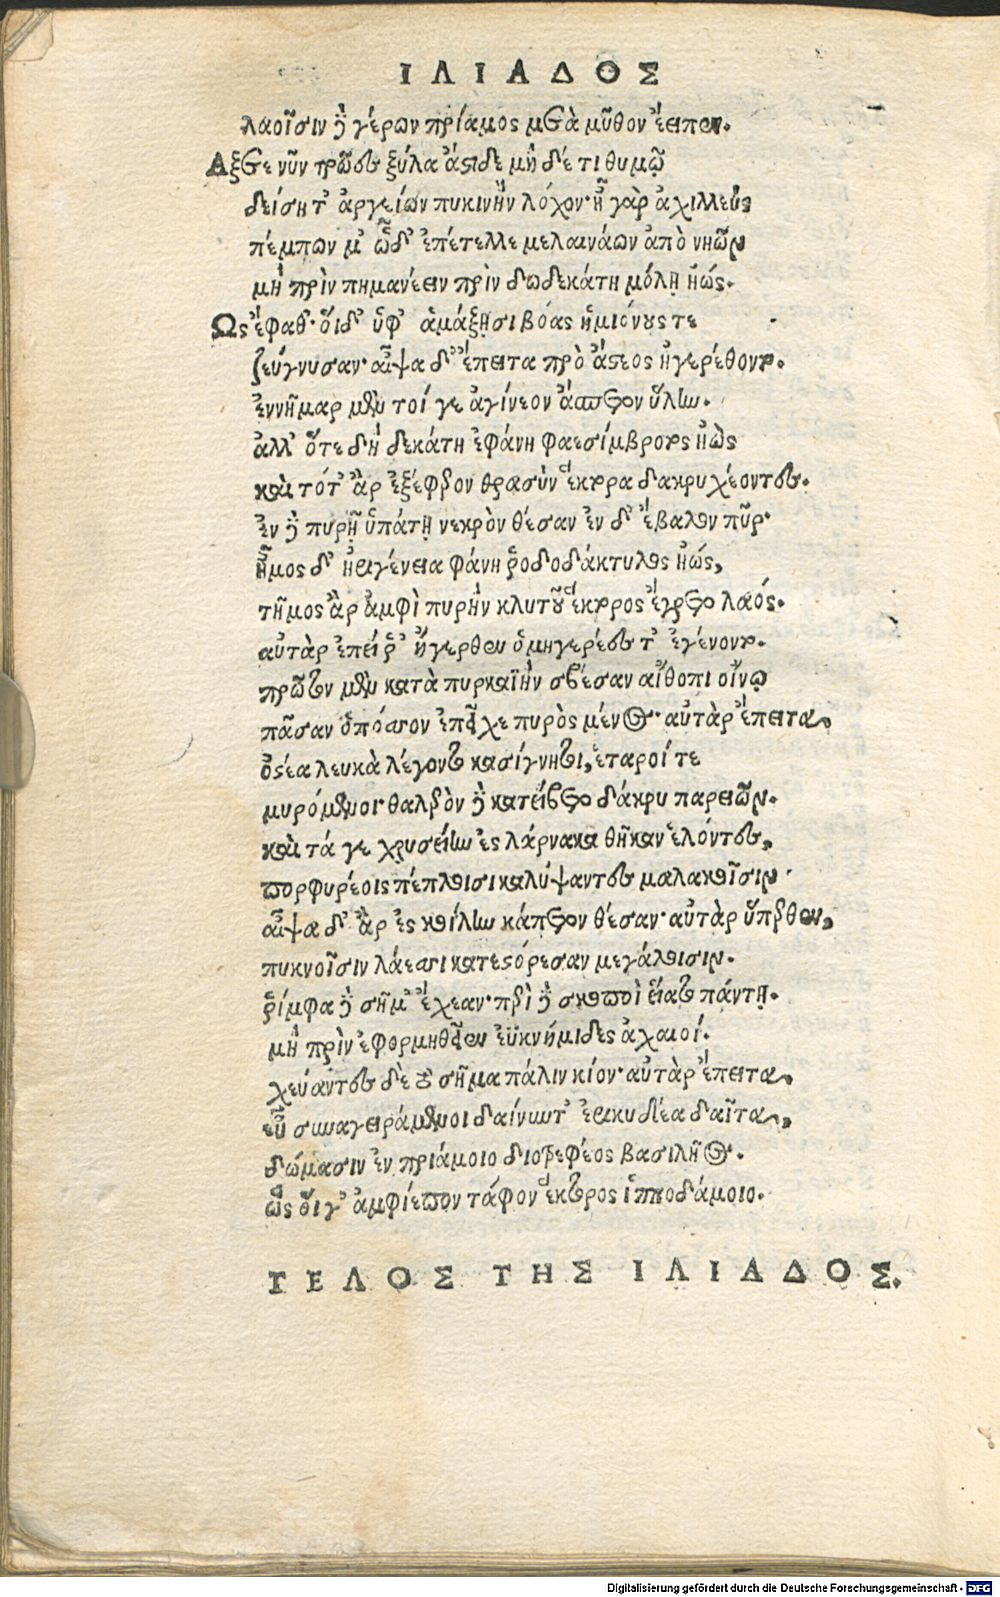 ΙΛΙΑΔΟΣ
λαοῖσιν δ' ὁ γέρων πρίαμος μετὰ μῦθον ἔειπεν.
Αξετε νῦν τρῶες ξύλα ἄστυδε μὴ δέ τι θυμῷ
δείσητ' ἀργείων πυκινὴν λόχον· ἦ γὰρ ἀχιλλεὺς
πέμπων μ' ὧδ' ἐπέτελλε μελαινάων ἀπὸ νηῶν
μὴ πρὶν πημανέειν πρὶν δωδεκάτη μόλῃ ἠώς.
Ως ἔφαθ'· οἱ δ' ὑφ' ἁμάξῃσι βόας ἡμιόνους τε
ζεύγνυσαν· αἶψα δ' ἔπειτα πρὸ ἄστεος ἠγερέθοντο.
ἐννῆμαρ μὲν τοί γε ἀγίνεον ἄσπετον ὕλην.
ἀλλ' ὅτε δὴ δεκάτη ἐφάνη φαεσίμβροτος ἠὼς
καὶ τότ' ἂρ ἐξέφερον θρασὺν ἕκτορα δακρυχέοντες.
ἐν δὲ πυρῇ ὑπάτῃ νεκρὸν θέσαν ἐν δ' ἔβαλον πῦρ·
ἦμος δ' ἠριγένεια φάνη ῥοδοδάκτυλος ἠώς,
τῆμος ἂρ ἀμφὶ πυρὴν κλυτοῦ ἕκτορος ἔγρετο λαός.
αὐτὰρ ἐπεί ῥ' ἤγερθεν ὁμηγερέες τ' ἐγένοντο.
πρῶτον μὲν κατὰ πυρκαϊὴν σβέσαν αἴθοπι οἴνῳ
πᾶσαν ὁπόσσον ἐπέσχε πυρὸς μένος· αὐτὰρ ἔπειτα,
ὀστέα λευκὰ λέγοντο κασίγνητοι, ἕταροί τε
μυρόμενοι· θαλερὸν δὲ κατείβετο δάκρυ παρειῶν.
καὶ τά γε χρυσείην ἐς λάρνακα θῆκαν ἑλόντες,
πορφυρέοις πέπλοισι καλύψαντες μαλακοῖσιν·
αἶψα δ' ἂρ ἐς κοίλην κάπετον θέσαν· αὐτὰρ ὕπερθεν,
πυκνοῖσιν λάεσσι κατεστόρεσαν μεγάλοισιν.
ῥίμφα δὲ σῆμ' ἔχεαν· περὶ δὲ σκοποὶ εἵατο πάντῃ.
μὴ πρὶν ἐφορμηθεῖεν ἐϋκνήμιδες ἀχαιοί.
χεύαντες δὲ τὸ σῆμα πάλιν κίον· αὐτὰρ ἔπειτα,
εὖ συναγειράμενοι δαίνυντ' ἐρικυδέα δαῖτα,
δώμασιν ἐν πριάμοιο διοτρεφέος βασιλῆος.
ὣς οἵ γ' ἀμφίεπον τάφον ἕκτορος ἱπποδάμοιο.
ΤΕΛΟΣ ΤΗΣ ΙΛΙΑΔΟΣ.
Digitalisierung gefördert durch die Deutsche Forschungsgemeinschaft - DFG